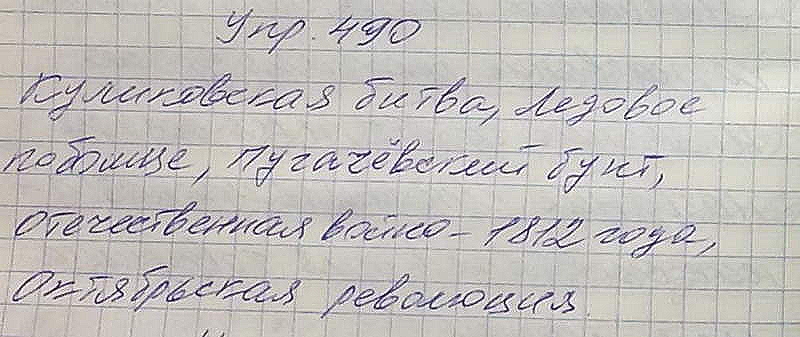 Упр. 490
Куликовская битва, Ледовое
побоище, Пугачёвский бунт,
Отечественная война - 1812 года,
Октябрьская революция.